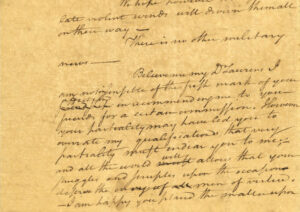 We hope however
late violent winds will drive them all
on their way —
There is no other military
news —
Believe me my D Laurens I
am not insensible of the first mark of your
affection in recommending me to your
friends for a certain commission. However
your partiality may have led you to
overrate my qualifications that very
partiality must endear you to me;
and all the world will allow that your
struggles and scruples upon the occasion
deserve the envy of men of virtue.
I am happy you placed the matter upon